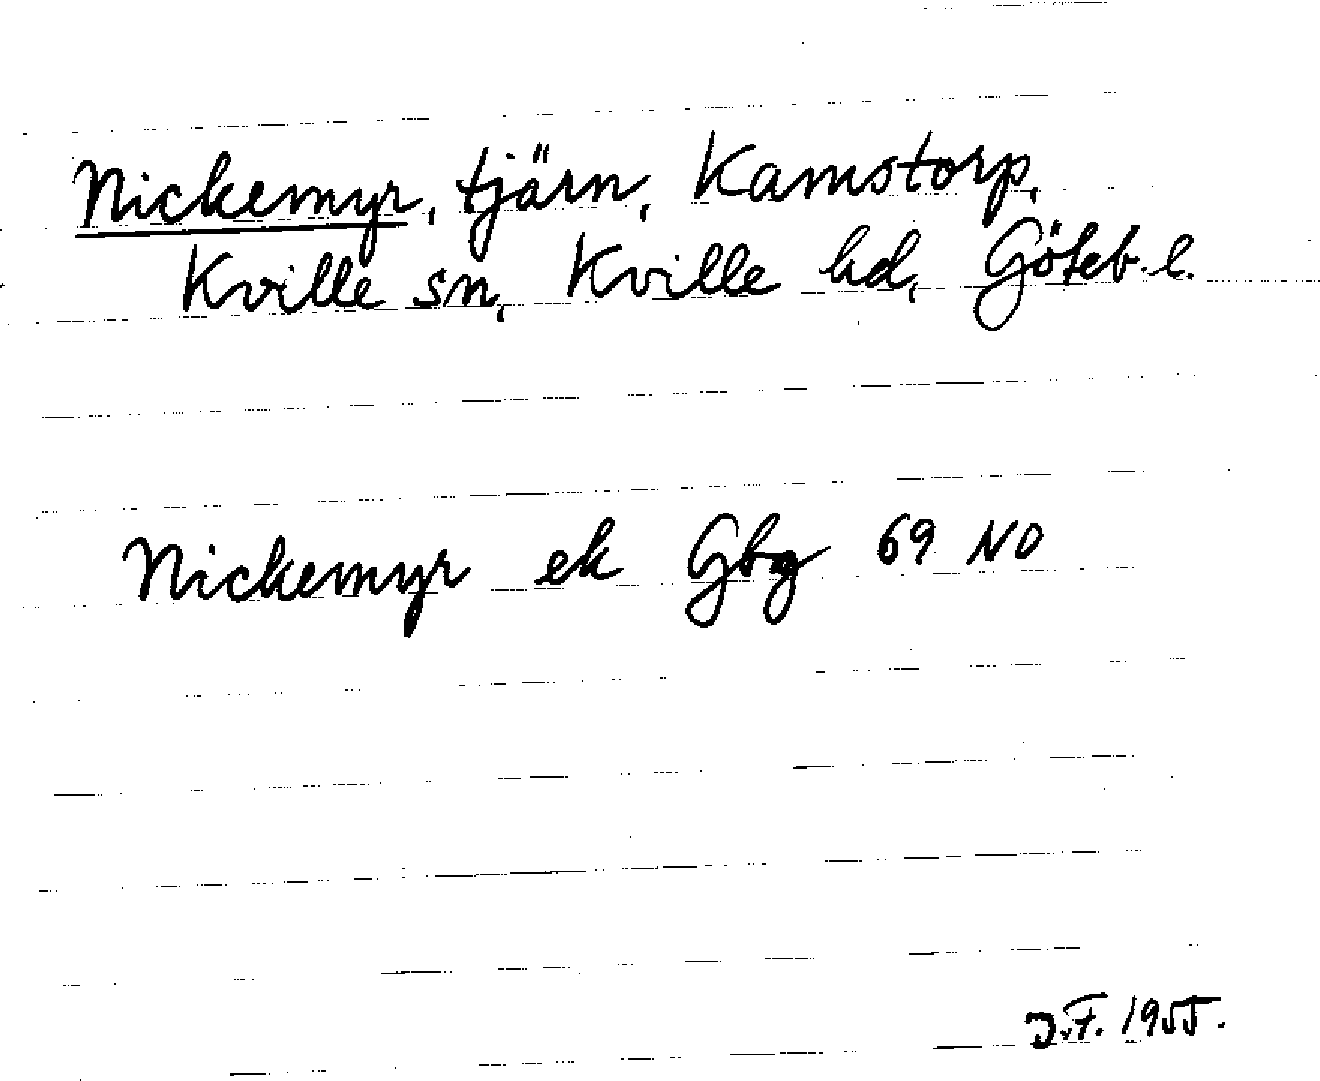 Nickemyr, tjärn, Kamstorp,
Kville sn, Kville hd, Göteb. l.
Nickemyr ek Gbg 69 NO
J.F. 1955.